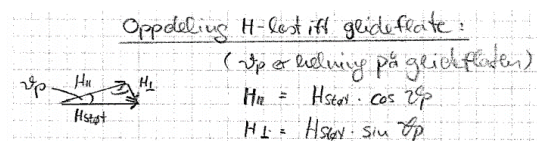 Oppdeling H-last ift glideflate:
(ϑp er helning på glideflaten)
ϑp H∥ H⊥
H∥ = Hstøt · cos ϑp
Hstøt
H⊥ = Hstøt · sin ϑp